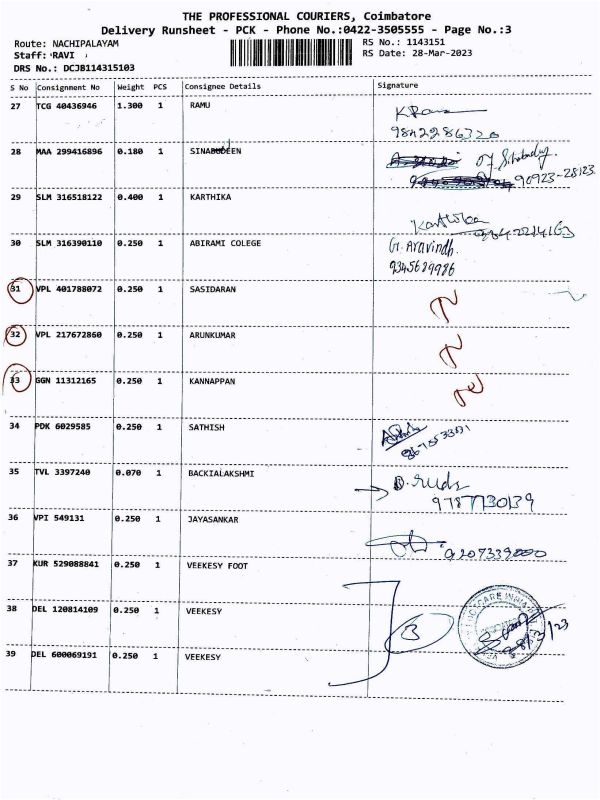 THE PROFESSIONAL COURIERS, Coimbatore
Delivery Runsheet - PCK - Phone No.:0422-3505555 - Page No.:3
Route: NACHIPALAYAM
RS No.: 1143151
Staff: RAVI
RS Date: 28-Mar-2023
DRS No.: DCJB114315103
S No Consignment No Weight PCS Consignee Details Signature
27 TCG 40436946 1.300 1 RAMU
9842286320
28 MAA 299416896 0.180 1 SINABUDEEN
90923-28123
29 SLM 316518122 0.400 1 KARTHIKA
Karthika
30 SLM 316390110 0.250 1 ABIRAMI COLEGE G. Aravindh.
9345689986
31 VPL 401788072 0.250 1 SASIDARAN
32 VPL 217672860 0.250 1 ARUNKUMAR
33 GGN 11312165 0.250 1 KANNAPPAN
34 PDK 6029585 0.250 1 SATHISH
35 TVL 3397240 0.070 1 BACKIALAKSHMI
9787730139
36 VPI 549131 0.250 1 JAYASANKAR
9207339000
37 KUR 529088841 0.250 1 VEEKESY FOOT
38 DEL 120814109 0.250 1 VEEKESY
3
28/3/23
39 DEL 600069191 0.250 1 VEEKESY